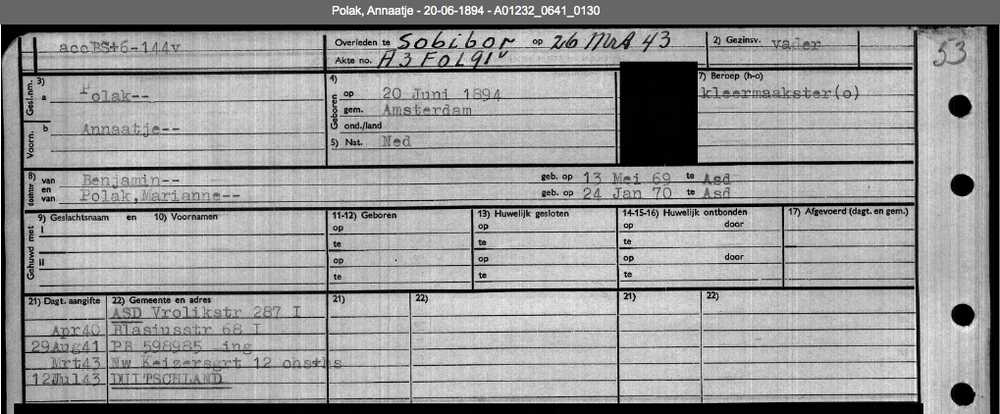 Polak, Annaatje - 20-06-1894 - A01232_0641_0130
accPS+6-144v
Overleden te Sobibor op 26 Mrt 43
Akte no. A3 FOL91v
2) Gezinsv. vader
53
Gesl.nm. 3) a Polak--
Voorn. b Annaatje--
4) Geboren op 20 Juni 1894
gem. Amsterdam
ond./land
5) Nat. Ned
7) Beroep (h-o)
kleermaakster(o)
8) van Benjamin-- geb. op 13 Mei 69 te Asd
en van Polak,Marianne-- geb. op 24 Jan 70 te Asd
Gehuwd met
9) Geslachtsnaam en 10) Voornamen
I
II
11-12) Geboren
op
te
op
te
13) Huwelijk gesloten
op
te
op
te
14-15-16) Huwelijk ontbonden
op door
te
op door
te
17) Afgevoerd (dagt. en gem.)
21) Dagt. aangifte 22) Gemeente en adres 21) 22) 21) 22)
ASD Vrolikstr 287 I
Apr40 Blasiusstr 68 I
29Aug41 PB 598985 ing
Mrt43 Nw Keizersgrt 12 ohs+hs
12Jul43 DUITSCHLAND